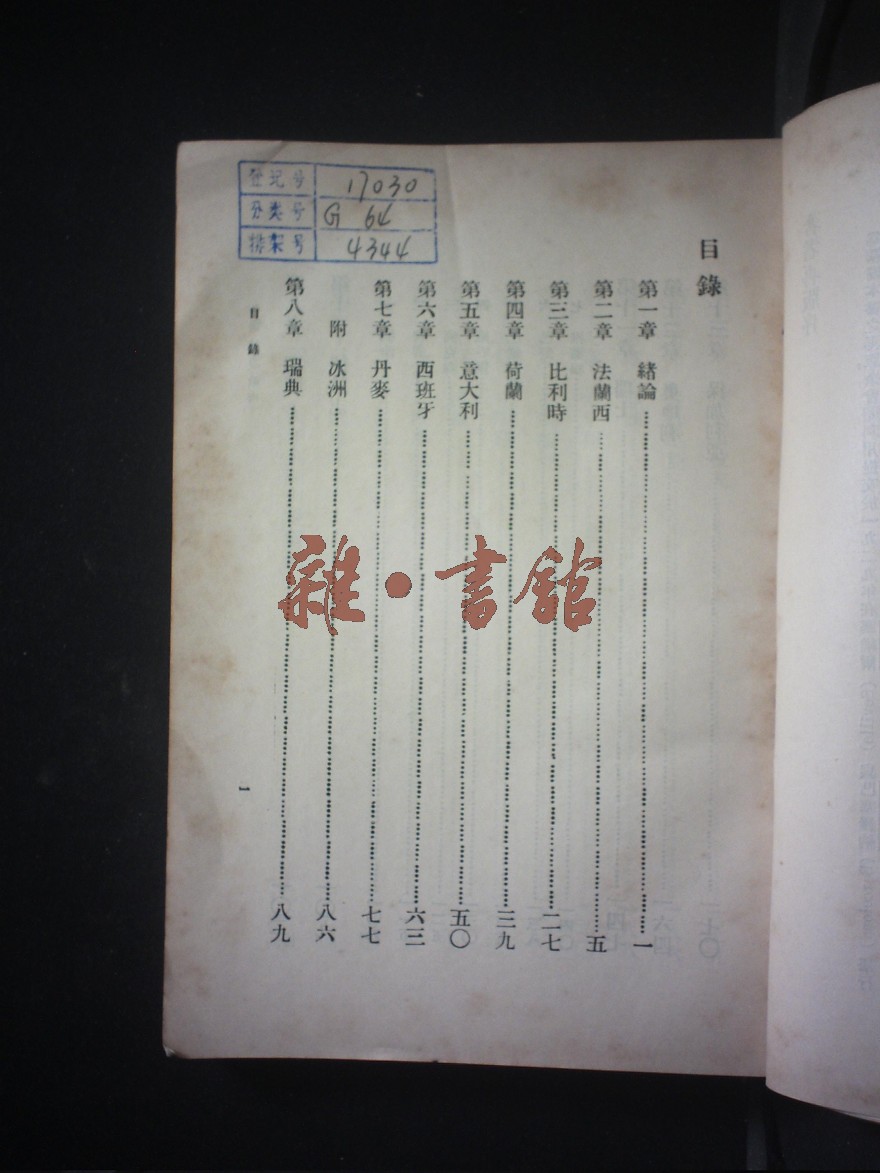 目錄
第一章 緒論……一
第二章 法蘭西……五
第三章 比利時……二七
第四章 荷蘭……三九
第五章 意大利……五〇
第六章 西班牙……六三
第七章 丹麥……七七
附 冰洲……八六
第八章 瑞典……八九
目錄
1
登记号 17030
分类号 G 64
排架号 4344
雜·書館